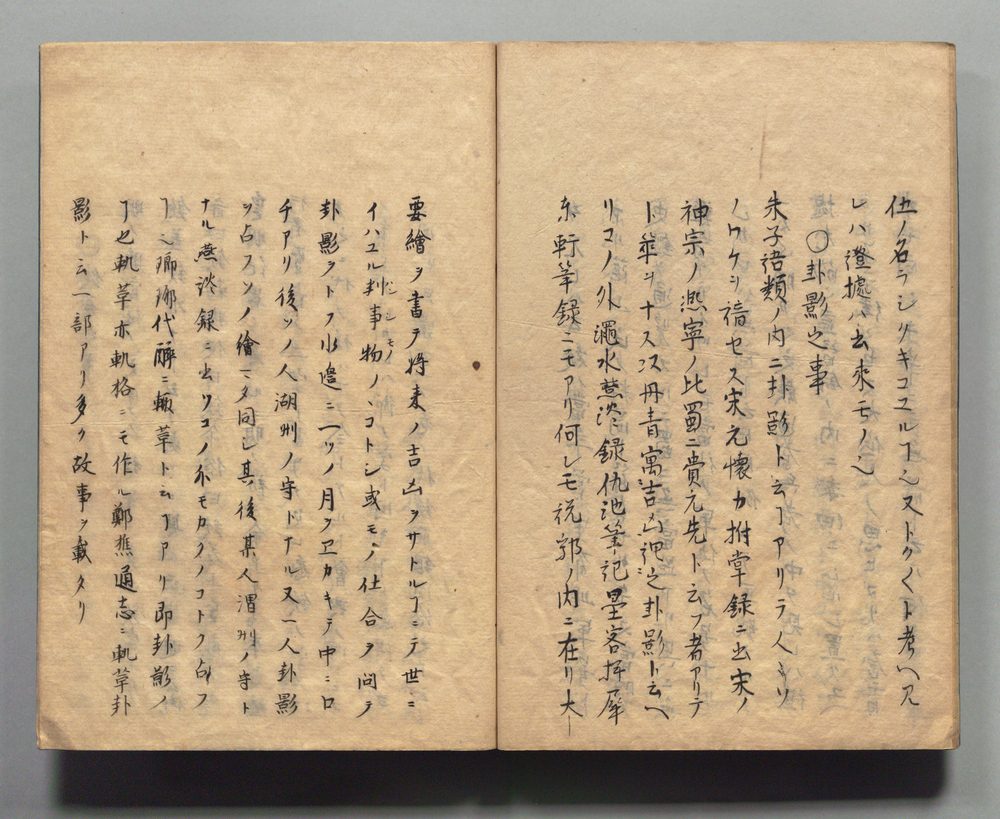 仕ノ名ラシクキコユルヿ也又トクくト考ヘ见
レハ證據ハ出來モノ也
〇卦影之事
朱子語類ノ内ニ卦影ト云ヿアリテ人ミソ
ノワケシ諳セス宋元懷カ拊掌録ニ出宋ノ
神宗ノ熙寧ノ比蜀ニ費元先ト云フ者アリテ
卜筮ヲナス以丹青寓吉凶謂之卦影ト云ヘ
リコノ外澠水燕談録仇池筆記墨客揮犀
東軒筆録ニモアリ何レモ説郛ノ内ニ在リ大
要繪ヲ書テ將来ノ吉凶ヲサトルヿニテ世ニ
イハユル判事物ノコトシ或モノ仕合ヲ問テ
卦影ヲトフ水邉ニ二ツノ月ヲヱカキテ中ニロ
チアリ後ソノ人湖州ノ守トナル又一人卦影
ヲ占フソノ繪マタ同シ其後其人渭州ノ守ト
ナル燕談録ニ出ツコノ外モカクノコトク占フ
ヿ也瑯琊代醉ニ軌草ト云ヿアリ即卦影ノ
ヿ也軌草亦軌格ニモ作ル鄭樵通志ニ軌草卦
影ト云一部アリ多ク故事ヲ載タリ